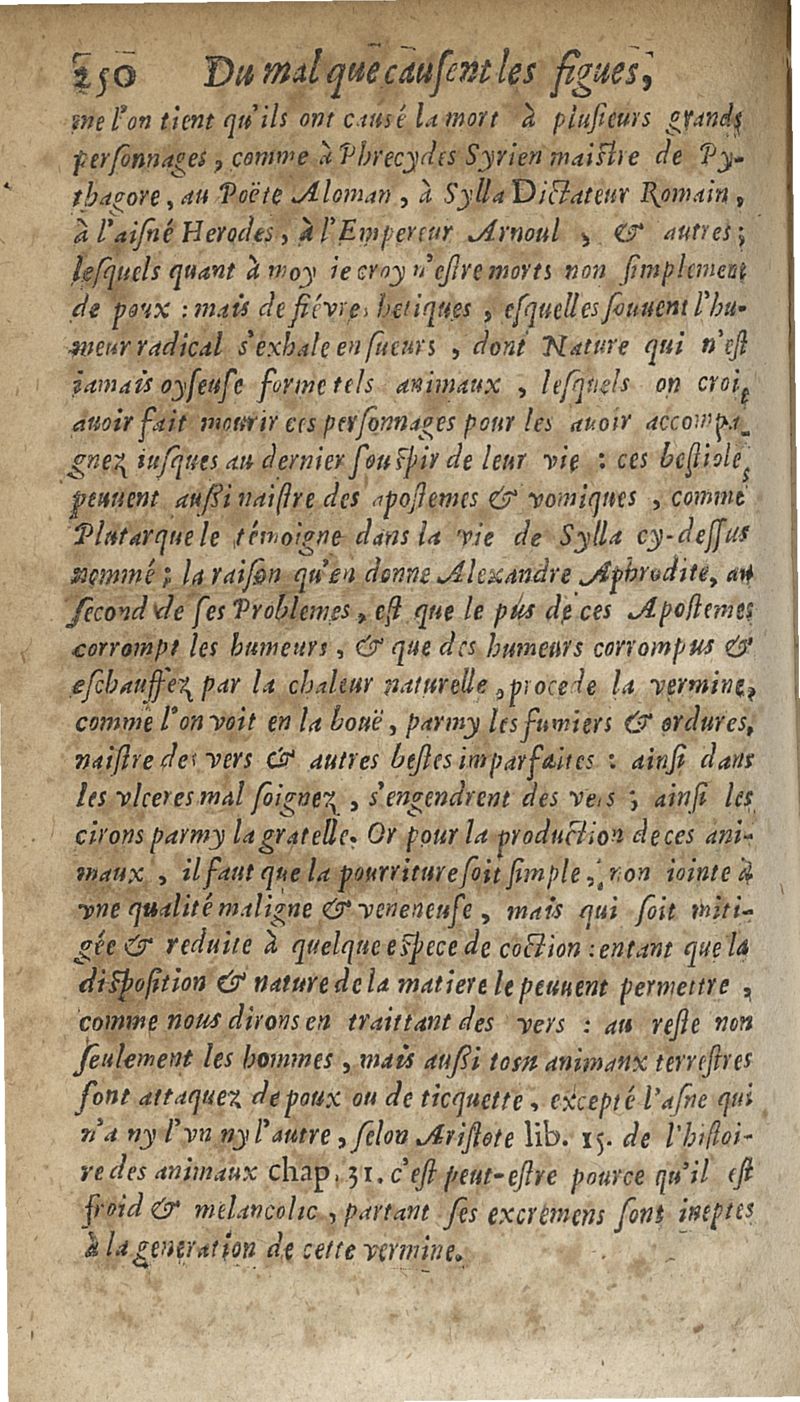 250 Du mal que causent les figues,
me l'on tient qu'ils ont causé la mort à plusieurs grands
personnages, comme à Phrecydes Syrien maistre de Py-
thagore, au Poëte Aloman, à Sylla Dictateur Romain,
à l'aisné Herodes, à l'Empereur Arnoul, & autres;
lesquels quant à moy ie croy n'estre morts non simplement
de poux : mais de fiévres hetiques, esquelles souuent l'hu-
meur radical s'exhale en sueurs, dont Nature qui n'est
iamais oyseuse forme tels animaux, lesquels on croit
auoir fait mourir ces personnages pour les auoir accompa-
gnez iusques au dernier souspir de leur vie : ces bestioles
peuuent aussi naistre des apostemes & vomiques, comme
Plutarque le témoigne dans la vie de Sylla cy-dessus
nommé ; la raison qu'en donne Alexandre Aphrodite, au
second de ses Problemes, est que le pus de ces Apostemes
corrompt les humeurs, & que des humeurs corrompus &
eschauffez par la chaleur naturelle, procede la vermine,
comme l'on voit en la bouë, parmy les fumiers & ordures,
naistre des vers & autres bestes imparfaites : ainsi dans
les vlceres mal soignez, s'engendrent des vers ; ainsi les
cirons parmy la gratelle. Or pour la production de ces ani-
maux, il faut que la pourriture soit simple, non iointe à
vne qualité maligne & veneneuse, mais qui soit miti-
gée & reduite à quelque espece de coction : entant que la
disposition & nature de la matiere le peuuent permettre,
comme nous dirons en traittant des vers : au reste non
seulement les hommes, mais aussi tosn animanx terrestres
sont attaquez de poux ou de ticquette, excepté l'asne qui
n'a ny l'vn ny l'autre, selon Aristote lib. 15. de l'histoi-
re des animaux chap. 31. c'est peut-estre pource qu'il est
froid & melancolic, partant ses excremens sont ineptes
à la generation de cette vermine.